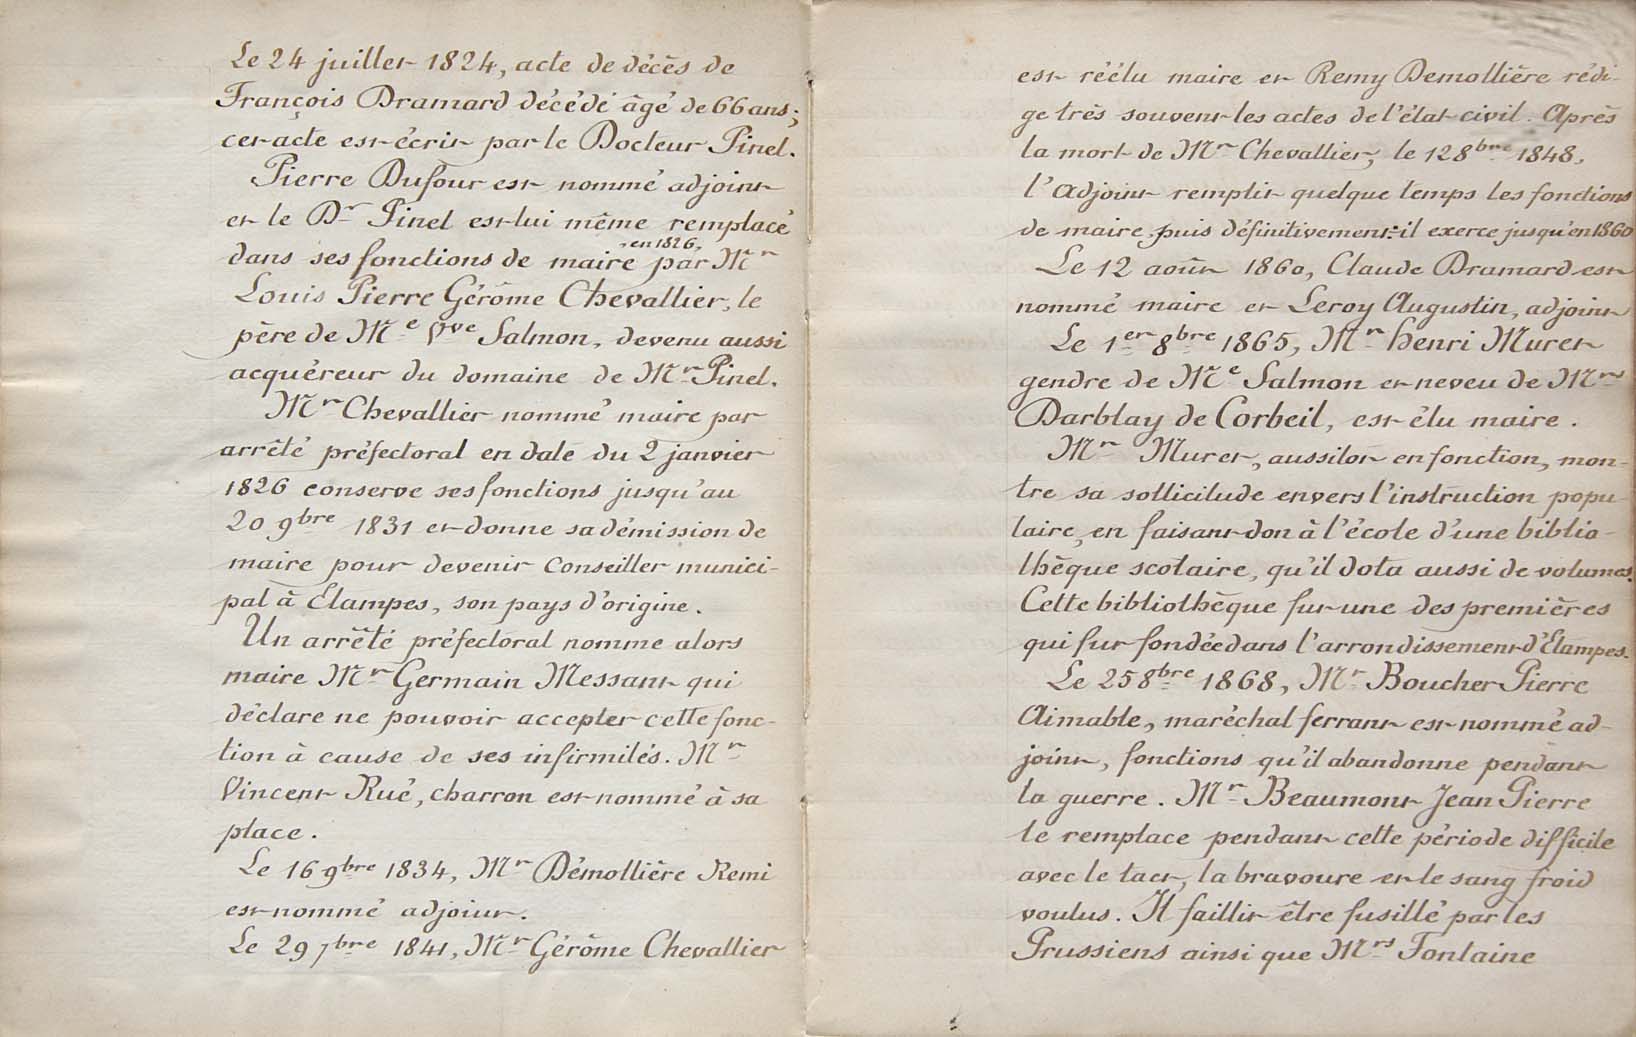 Le 24 juillet 1824, acte de décès de
François Dramard décédé âgé de 66 ans;
cet acte est écrit par le Docteur Pinel.
Pierre Dufour est nommé adjoint
et le Dr Pinel est lui même remplacé
en 1826,
dans ses fonctions de maire par Mr
Louis Pierre Gérôme Chevallier, le
père de Me Vve Salmon, devenu aussi
acquéreur du domaine de Mr Pinel.
Mr Chevallier nommé maire par
arrêté préfectoral en date du 2 janvier
1826 conserve ses fonctions jusqu'au
20 9bre 1831 et donne sa démission de
maire pour devenir Conseiller munici-
pal à Etampes, son pays d'origine.
Un arrêté préfectoral nomme alors
maire Mr Germain Messant qui
déclare ne pouvoir accepter cette fonc-
tion à cause de ses infirmités. Mr
Vincent Rué, charron est nommé à sa
place.
Le 16 9bre 1834, Mr Démollière Remi
est nommé adjoint.
Le 29 7bre 1841, Mr Gérôme Chevallier
est réélu maire et Remy Demollière rédi-
ge très souvent les actes de l'état civil. Après
la mort de Mr Chevallier, le 12 8bre 1848,
l'adjoint remplit quelque temps les fonctions
de maire, puis définitivement: il exerce jusqu'en 1860
Le 12 août 1860, Claude Dramard est
nommé maire et Leroy Augustin, adjoint
Le 1er 8bre 1865, Mr henri Muret
gendre de Me Salmon et neveu de Mrs
Darblay de Corbeil, est élu maire.
Mr Muret, aussitôt en fonction, mon-
tre sa sollicitude envers l'instruction popu-
laire, en faisant don à l'école d'une biblio-
thèque scolaire, qu'il dota aussi de volumes.
Cette bibliothèque fut une des premières
qui fut fondée dans l'arrondissement d'Etampes.
Le 25 8bre 1868, Mr Boucher Pierre
Aimable, maréchal ferrant est nommé ad-
joint, fonctions qu'il abandonne pendant
la guerre. Mr Beaumont Jean Pierre
le remplace pendant cette période difficile
avec le tact, la bravoure et le sang froid
voulus. Il faillit être fusillé par les
Prussiens ainsi que Mrs Fontaine